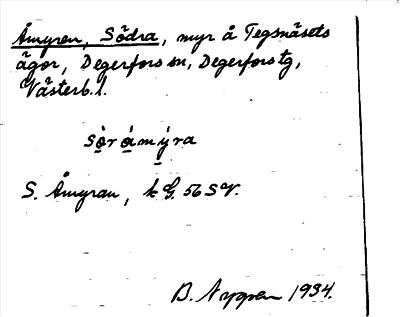 Åmyren, Södra, myr å Tegsnäsets
ägor, Degerfors sn, Degerfors tg,
Västerb. l.
sö̀rámýra
S. Åmyran, k G. 56 SV.
B. Nyggren 1934.